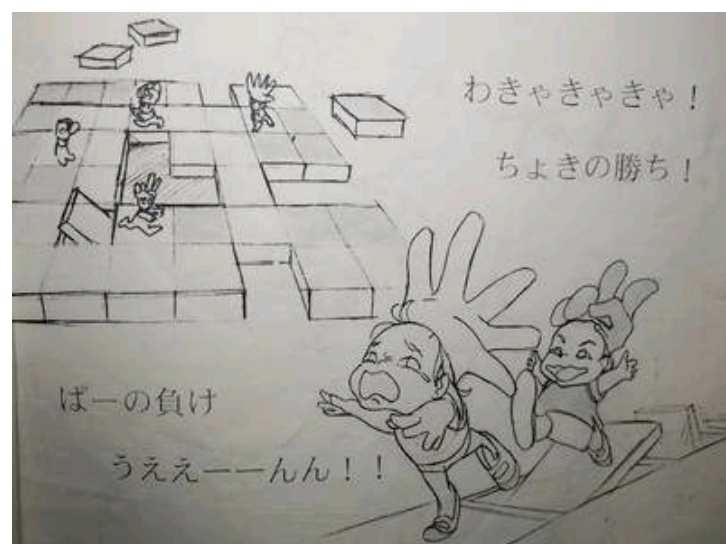 わきゃきゃきゃ！
ちょきの勝ち！
ぱーの負け
うええーーんん！！